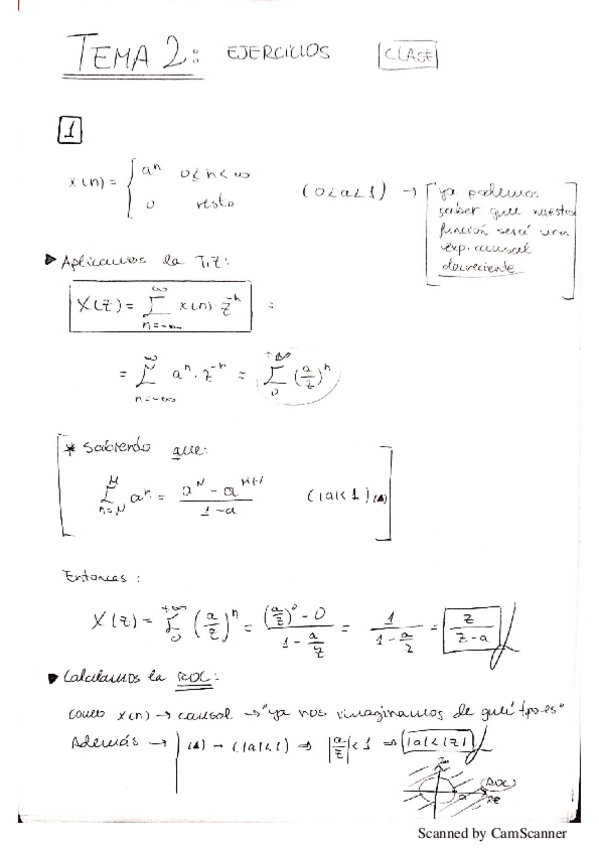 TEMA 2: EJERCICIOS CLASE
1
x(n) = { a^n 0≤n<∞
0 resto
(0<a<1) → [ya podemos
saber que nuestra
función será una
exp. causal
decreciente]
► Aplicamos la T.Z:
X(z) = ∑_{n=-∞}^{∞} x(n)·z^{-n} =
= ∑_{n=-∞}^{∞} a^n·z^{-n} = ∑_{0}^{+∞} (a/z)^n
* Sabiendo que:
∑_{n=N}^{M} a^n = (a^N - a^{M+1})/(1-a) (|a|<1)(▲)
Entonces:
X(z) = ∑_{0}^{+∞} (a/z)^n = ((a/z)^0 - 0)/(1 - a/z) = 1/(1 - a/z) = z/(z-a)
► Calculamos la ROC:
Como x(n) → causal → "ya nos imaginamos de qué tipo es"
Además → | (▲) → (|a|<1) ⇒ |a/z|<1 ⇒ |a|<|z|
Im
(ROC)
a Re
Scanned by CamScanner